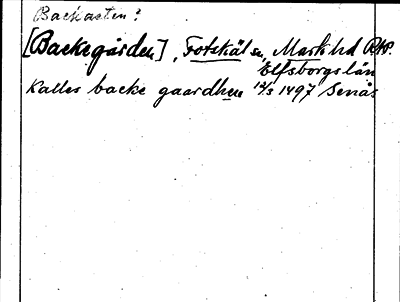 Backasten?
[Backegården], Fotskäl sn, Mark hd
Elfsborgs län
Kalles backe gaardhen 12/3 1497 Senäs